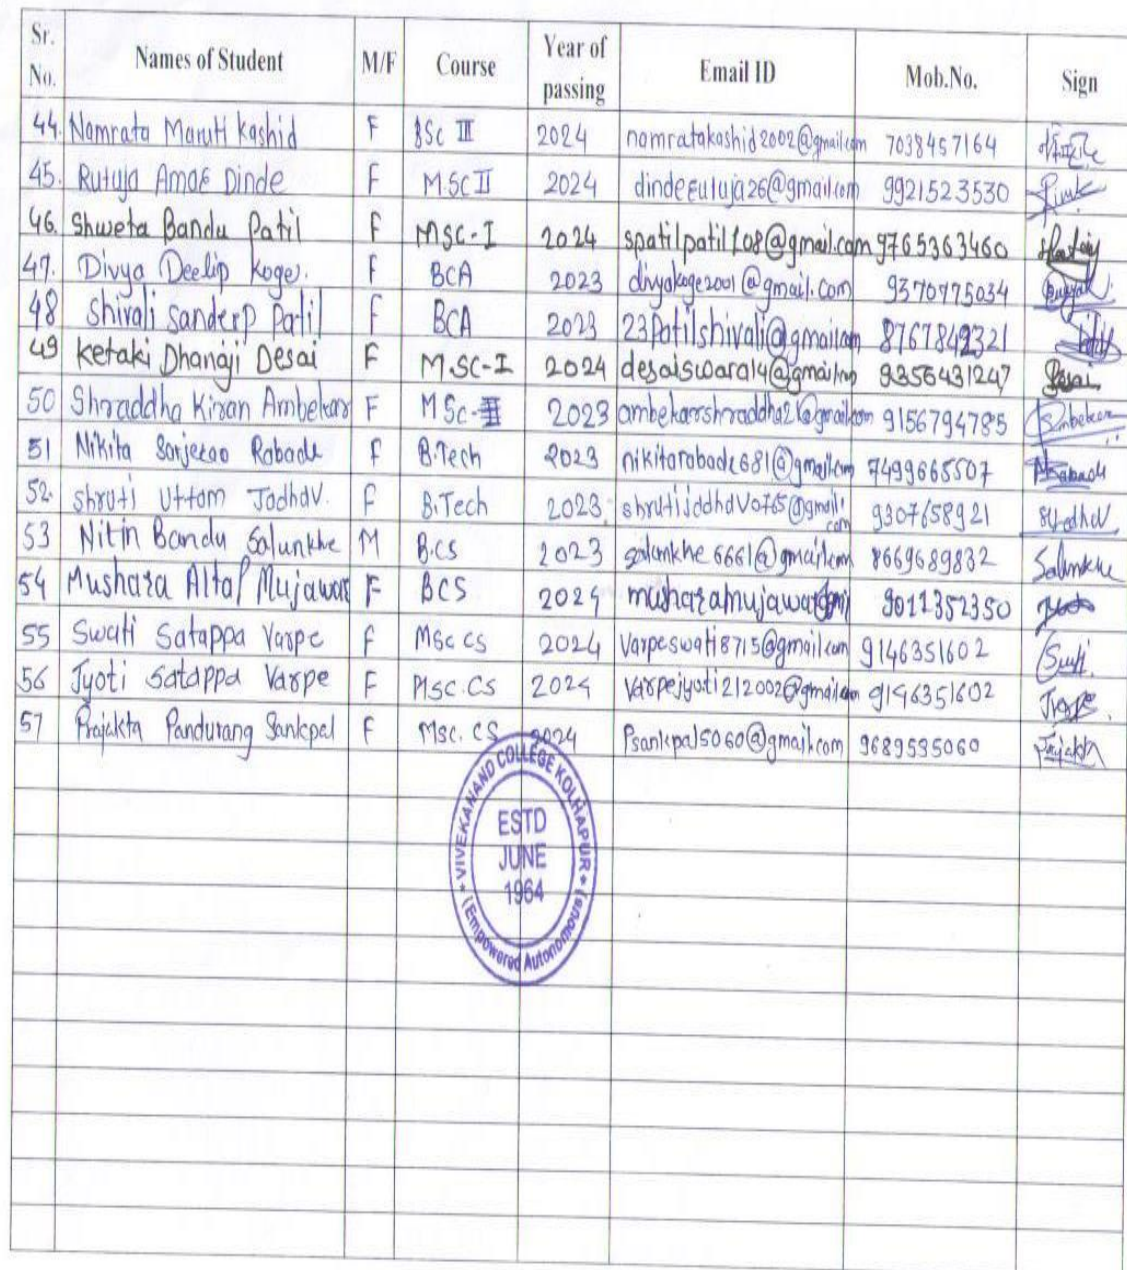 Sr. No. Names of Student M/F Course Year of passing Email ID Mob.No. Sign
44. Namrata Maruti Kashid F BSc III 2024 namratakashid2002@gmail.com 7038457164
45. Rutuja Amar Dinde F M.SC II 2024 dinderutuja26@gmail.com 9921523530
46. Shweta Bandu Patil F MSC-I 2024 spatilpatil108@gmail.com 9765363460
47. Divya Deelip Koge. F BCA 2023 divyakoge2001@gmail.com 9370775034
48 Shivali Sandeep Patil F BCA 2023 23patilshivali@gmail.com 8767849321
49 Ketaki Dhanaji Desai F M.SC-I 2024 desaiswara14@gmail.com 9356431247 Desai
50 Shraddha Kiran Ambekar F MSc-II 2023 ambekarshraddha21@gmail.com 9156794785 Ambekar
51 Nikita Sarjerao Rabade F B.Tech 2023 nikitarabade681@gmail.com 7499665507 Rabade
52. Shruti Uttam Jadhav. F B.Tech 2023 shrutijadhav0765@gmail.com 9307658921
53 Nitin Bandu Salunkhe M B.CS 2023 salunkhe6661@gmail.com 8669689832 Salunkhe
54 Mushara Altaf Mujawar F BCS 2024 musharamujawar 9011352350
55 Swati Satappa Varpe F MSc CS 2024 Varpeswati8715@gmail.com 9146351602 Swati
56 Jyoti Satappa Varpe F MSC.CS 2024 Varpejyoti212002@gmail.com 9146351602
57 Prajakta Pandurang Sankpal F MSC. CS 2024 Psankpal5060@gmail.com 9689535060 Prajakta
VIVEKANAND COLLEGE KOLHAPUR
ESTD
JUNE
1964
(Empowered Autonomous)